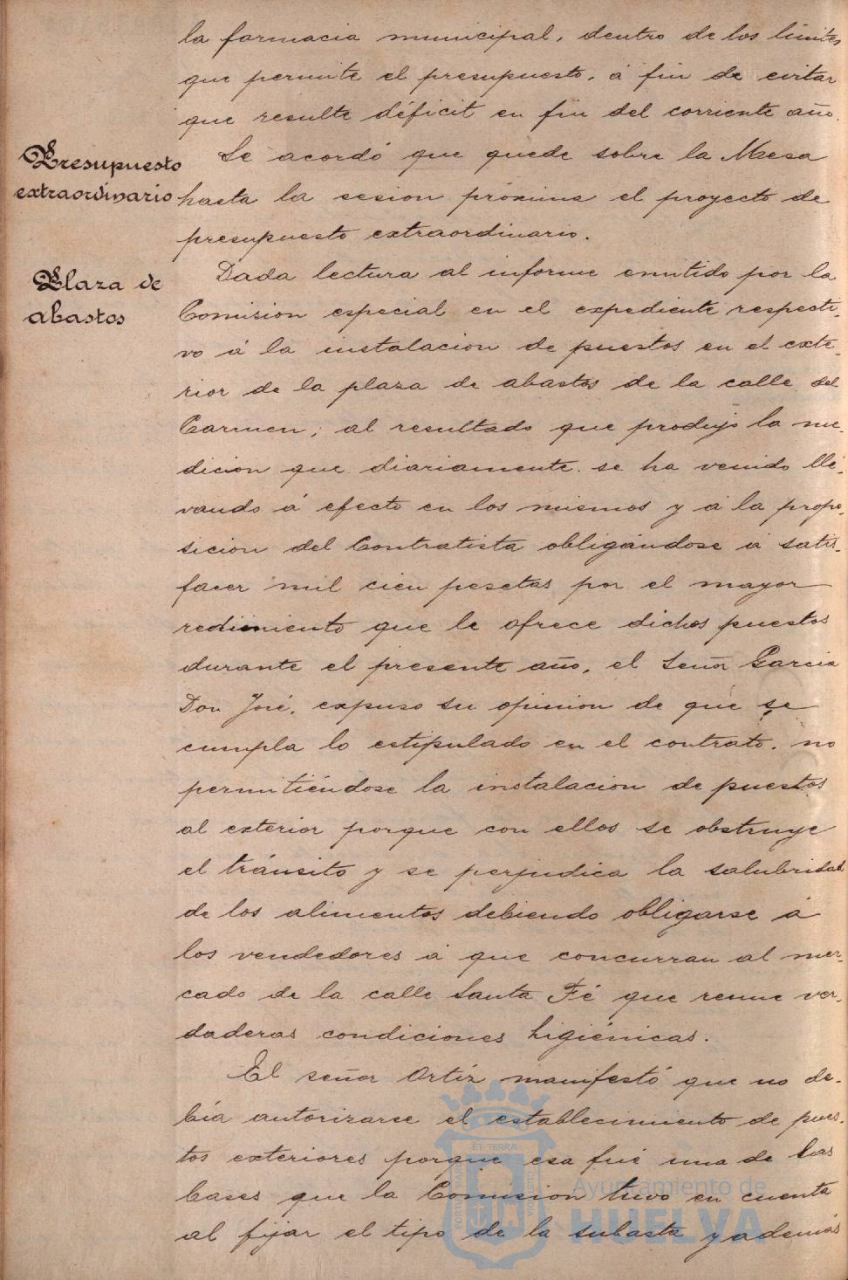 la farmacia municipal, dentro de los límites
que permite el presupuesto, á fin de evitar
que resulte déficit en fin del corriente año.
Presupuesto
extraordinario
Se acordó que quede sobre la Mesa
hasta la sesion próxima el proyecto de
presupuesto extraordinario.
Plaza de
abastos
Dada lectura al informe emitido por la
Comision especial en el expediente respecti-
vo á la instalacion de puestos en el exte-
rior de la plaza de abastos de la calle del
Carmen, al resultado que produjo la me-
dicion que diariamente se ha venido lle-
vando á efecto en los mismos y á la propo-
sicion del Contratista obligándose á satis-
facer mil cien pesetas por el mayor
redimiento que le ofrece dichos puestos
durante el presente año, el Señor Garcia
Don José, expuso su opinion de que se
cumpla lo estipulado en el contrato, no
permitiéndose la instalacion de puestos
al exterior porque con ellos se obstruye
el tránsito y se perjudica la salubridad
de los alimentos debiendo obligarse á
los vendedores á que concurran al mer-
cado de la calle Santa Fé que reune ver-
daderas condiciones higiénicas.
El señor Ortiz manifestó que no de-
bía autorizarse el establecimiento de pues-
tos exteriores porque esa fué una de las
bases que la Comision tuvo en cuenta
al fijar el tipo de la subasta y además
Ayuntamiento de
HUELVA